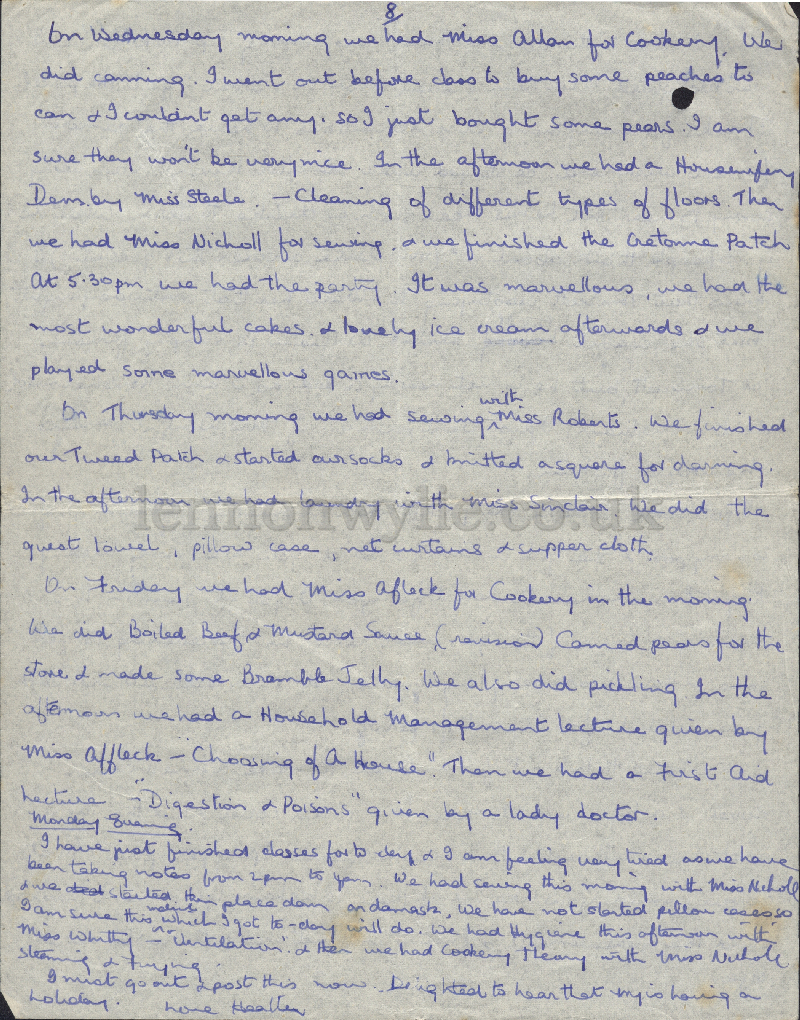 8/
On Wednesday morning we had Miss Allan for Cookery. We
did canning. I went out before class to buy some peaches to
can & I couldn't get any. so I just bought some pears. I am
sure they won't be very nice. In the afternoon we had a Housewifery
Dem. by Miss Steele. – Cleaning of different types of floors. Then
we had Miss Nicholl for sewing. & we finished the Cretonne Patch
At 5.30pm we had the party. It was marvellous, we had the
most wonderful cakes. & lovely ice cream afterwards & we
played some marvellous games.
On Thursday morning we had sewing with Miss Roberts. We finished
our Tweed Patch & started our socks & knitted a square for darning.
In the afternoon we had laundry with Miss Sinclair We did the
guest towel, pillow case, net curtains & supper cloth.
On Friday we had Miss Afleck for Cookery in the morning.
We did Boiled Beef & Mustard Sauce, (revision) Canned pears for the
store & made some Bramble Jelly. We also did pickling In the
afternoon we had a Household Management lecture given by
Miss Affleck – "Choosing of A House". Then we had a First Aid
Lecture – "Digestion & Poisons" given by a lady doctor.
Monday Evening.
I have just finished classes for to day & I am feeling very tired as we have
been taking notes from 2pm to 4pm. We had sewing this morning with Miss Nicholl
& we started place darn on damask, We have not started pillow cases so
I am sure this which I got to-day will do. We had Hygiene this afternoon with
Miss Whitty – "Ventilation". & then we had Cookery Theory with Miss Nicholl
steaming & Frying.
I must go out & post this now. Delighted to hear that is having a
holiday. Love Heather
lennonwylie.co.uk